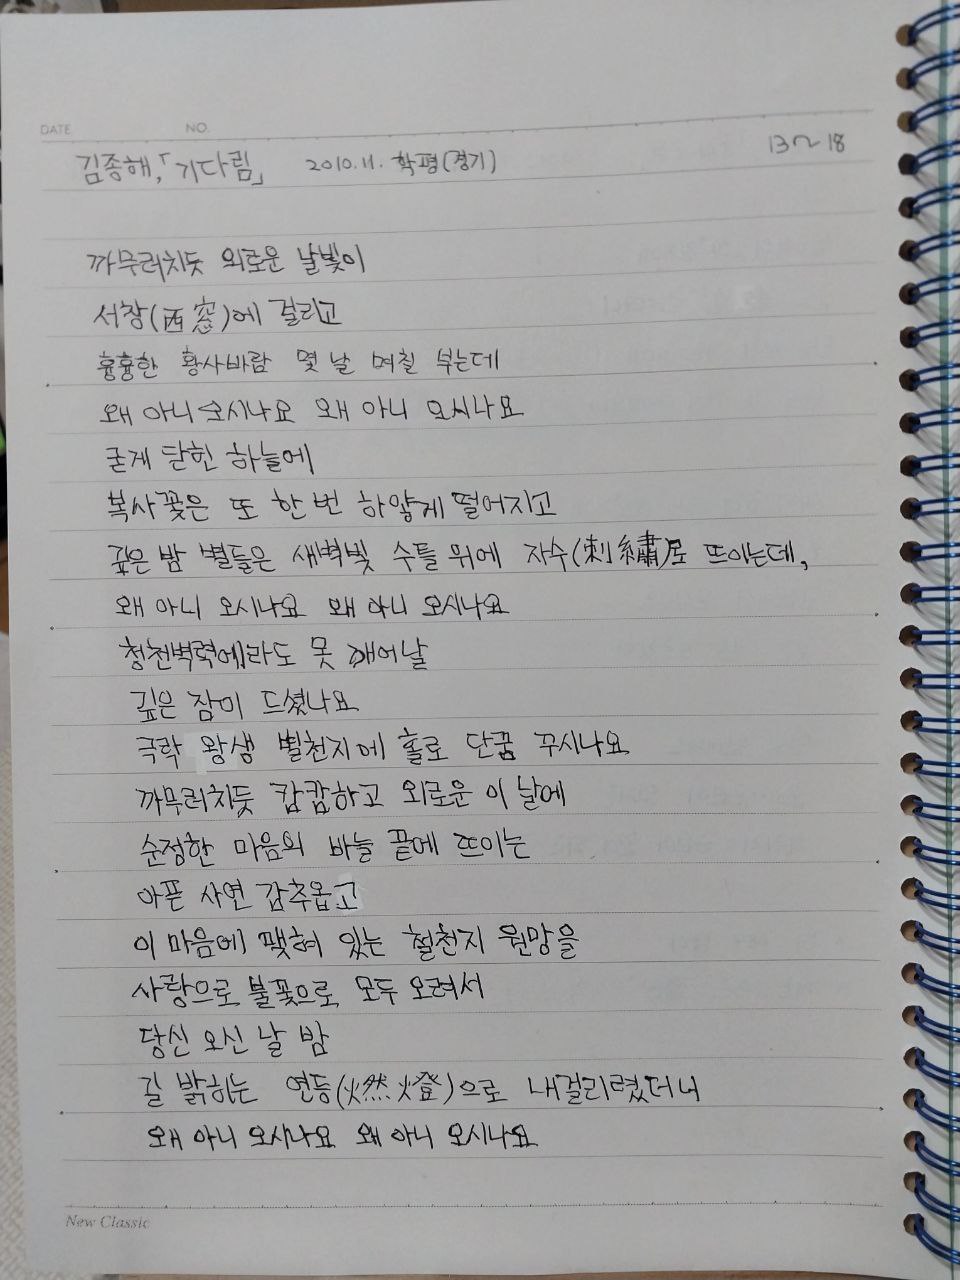 DATE NO.
김종해, 「기다림」 2010.11. 학평(경기) 13~18
까무러치듯 외로운 날빛이
서창(西窓)에 걸리고
흉흉한 황사바람 몇 날 며칠 부는데
왜 아니 오시나요 왜 아니 오시나요
굳게 닫힌 하늘에
복사꽃은 또 한 번 하얗게 떨어지고
깊은 밤 별들은 새벽빛 수틀 위에 자수(刺繡)로 뜨이는데,
왜 아니 오시나요 왜 아니 오시나요
청천벽력에라도 못 깨어날
깊은 잠이 드셨나요
극락 왕생 별천지에 홀로 단꿈 꾸시나요
까무러치듯 캄캄하고 외로운 이 날에
순정한 마음의 바늘 끝에 뜨이는
아픈 사연 감추옵고
이 마음에 맺혀 있는 철천지 원망을
사랑으로 불꽃으로 모두 오려서
당신 오신 날 밤
길 밝히는 연등(燃燈)으로 내걸리렸더니
왜 아니 오시나요 왜 아니 오시나요
New Classic